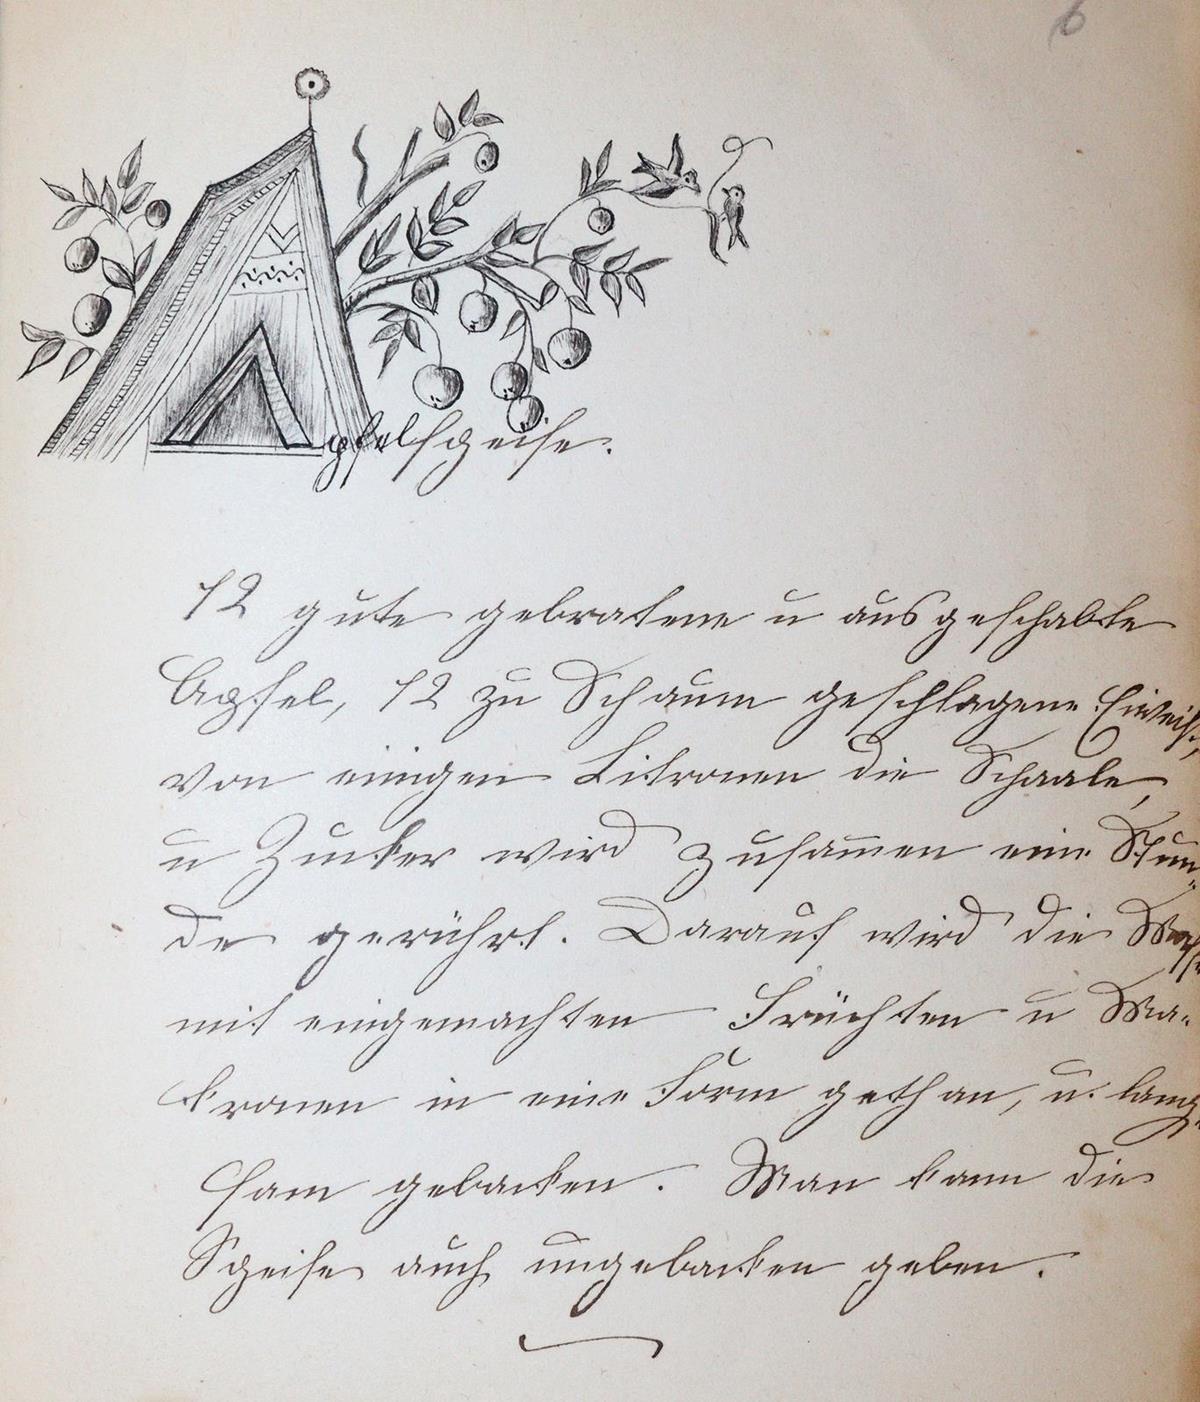 6
Apfelspeise.
12 gute gebratene u ausgeschabte
Apfel, 12 zu Schaum geschlagene Eiweiß,
von einigen Litronen die Schaale,
u Zucker wird zusam̅en eine Stun-
de gerührt. Darauf wird die Masse
mit eingemachten Früchten u Ma-
kronen in eine Form gethan, u. lang-
sam gebacken. Man kann die
Speise auch ungebacken geben.